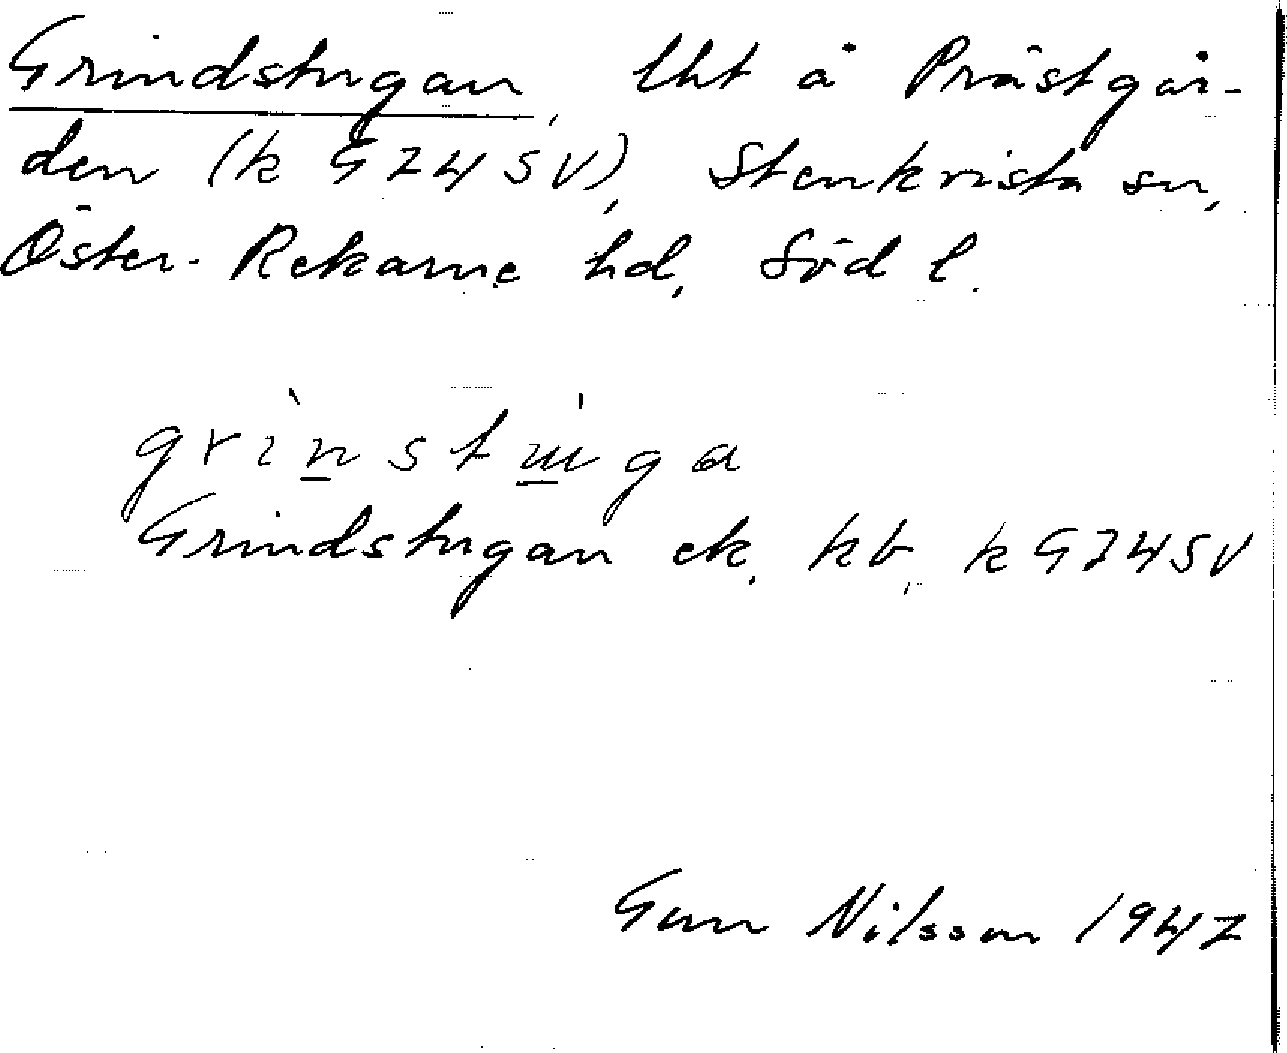 Grindstugan, lht å Prästgår-
den (k G Z 4 S V), Stenkvista sn,
Öster-Rekarne hd, Söd l.
grìnstuga
Grindstugan ek, kb, k G Z 4 S V
Gun Nilsson 1947